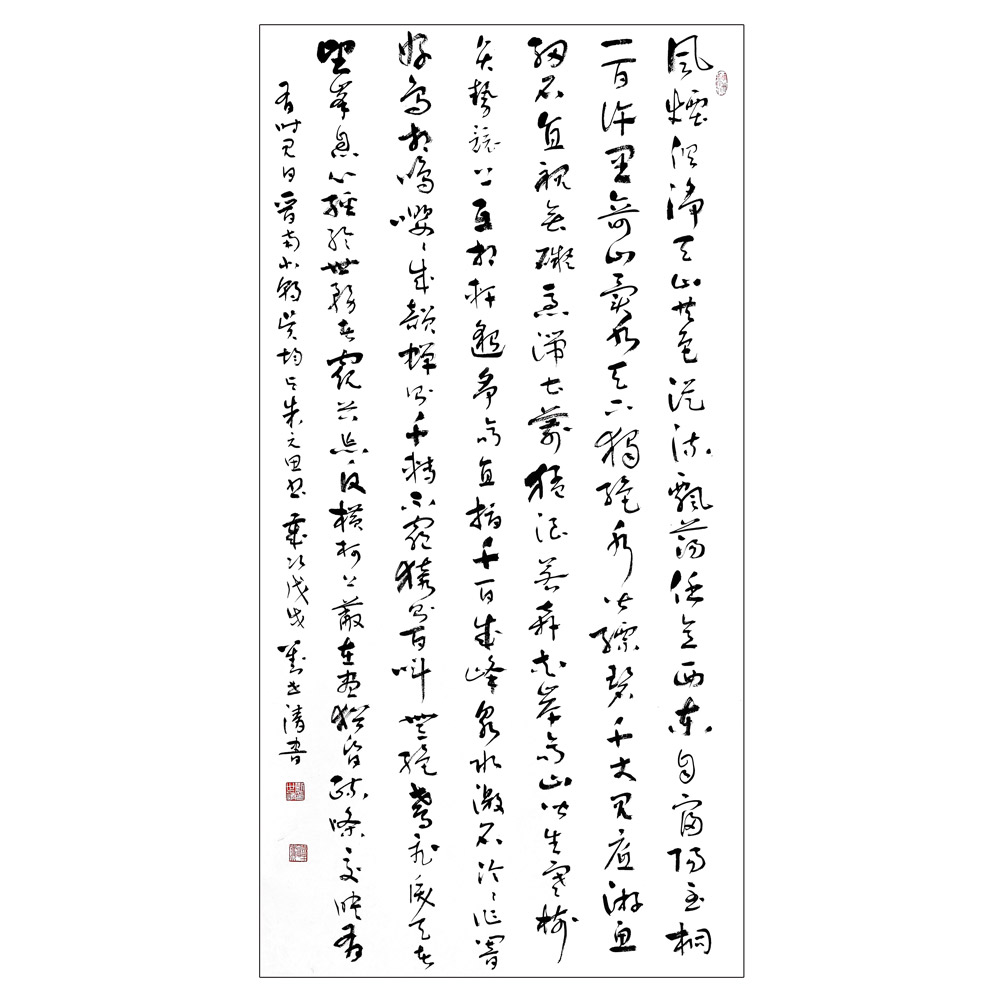 風煙俱淨天山共色從流飄蕩任意西東自富陽至桐
一百許里奇山異水天下獨絕水皆縹碧千丈見底游魚
細石直視無礙急湍甚箭猛浪若奔夾岸高山皆生寒樹
負勢競上互相軒邈爭高直指千百成峰泉水激石泠泠作響
好鳥相鳴嚶嚶成韻蟬則千轉不窮猿則百叫無絕鳶飛戾天者
望峯息心經綸世務者窺谷忘反橫柯上蔽在晝猶昏疏條交映有
有时見日吴均与朱元思书歲次戊戌清書